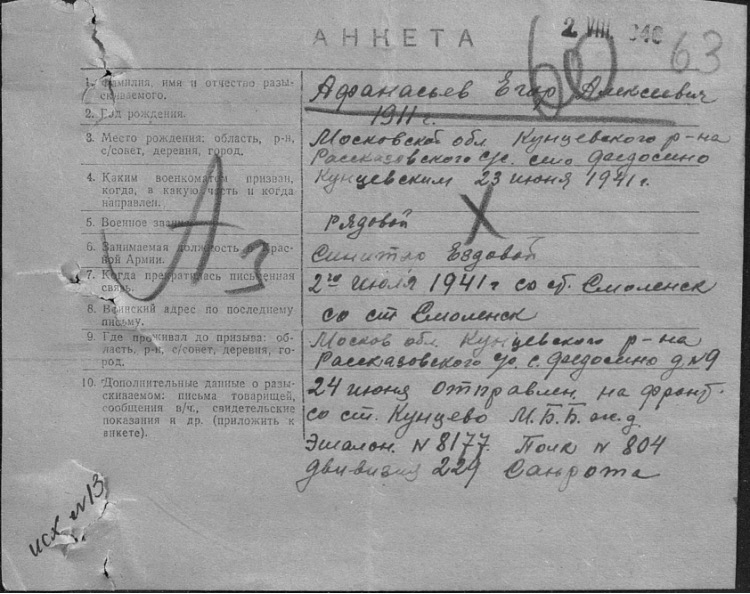 АНКЕТА
2 VIII 1946
60
63
1. Фамилия, имя и отчество разы-
скиваемого.
Афанасьев Егор Алексеевич
2. Год рождения.
1911 г.
3. Место рождения: область, р-н,
с/совет, деревня, город.
Московской обл Кунцевского р-на
Рассказовского с/с. село Федосино
4. Каким военкоматом призван,
когда, в какую часть и когда
направлен.
Кунцевским 23 июня 1941 г.
5. Военное звание
рядовой
6. Занимаемая должность в Крас-
ной Армии.
Ездовой
7. Когда прекратилась письменная
связь.
2го июля 1941 г со ст. Смоленск
8. Воинский адрес по последнему
письму.
со ст Смоленск
9. Где проживал до призыва: об-
ласть, р-н, с/совет, деревня, го-
род.
Москов обл. Кунцевского р-на
Рассказовского с/с. с. Федосино д. №9
10. Дополнительные данные о разы-
скиваемом: письма товарищей,
сообщения в/ч., свидетельские
показания и др. (приложить к
анкете).
24 июня отправлен на фронт
со ст. Кунцево М.Б.Б. ж.д
Эшалон. N 8177. Полк N 804
дивизия 229 Санрота
Аз
исх №13